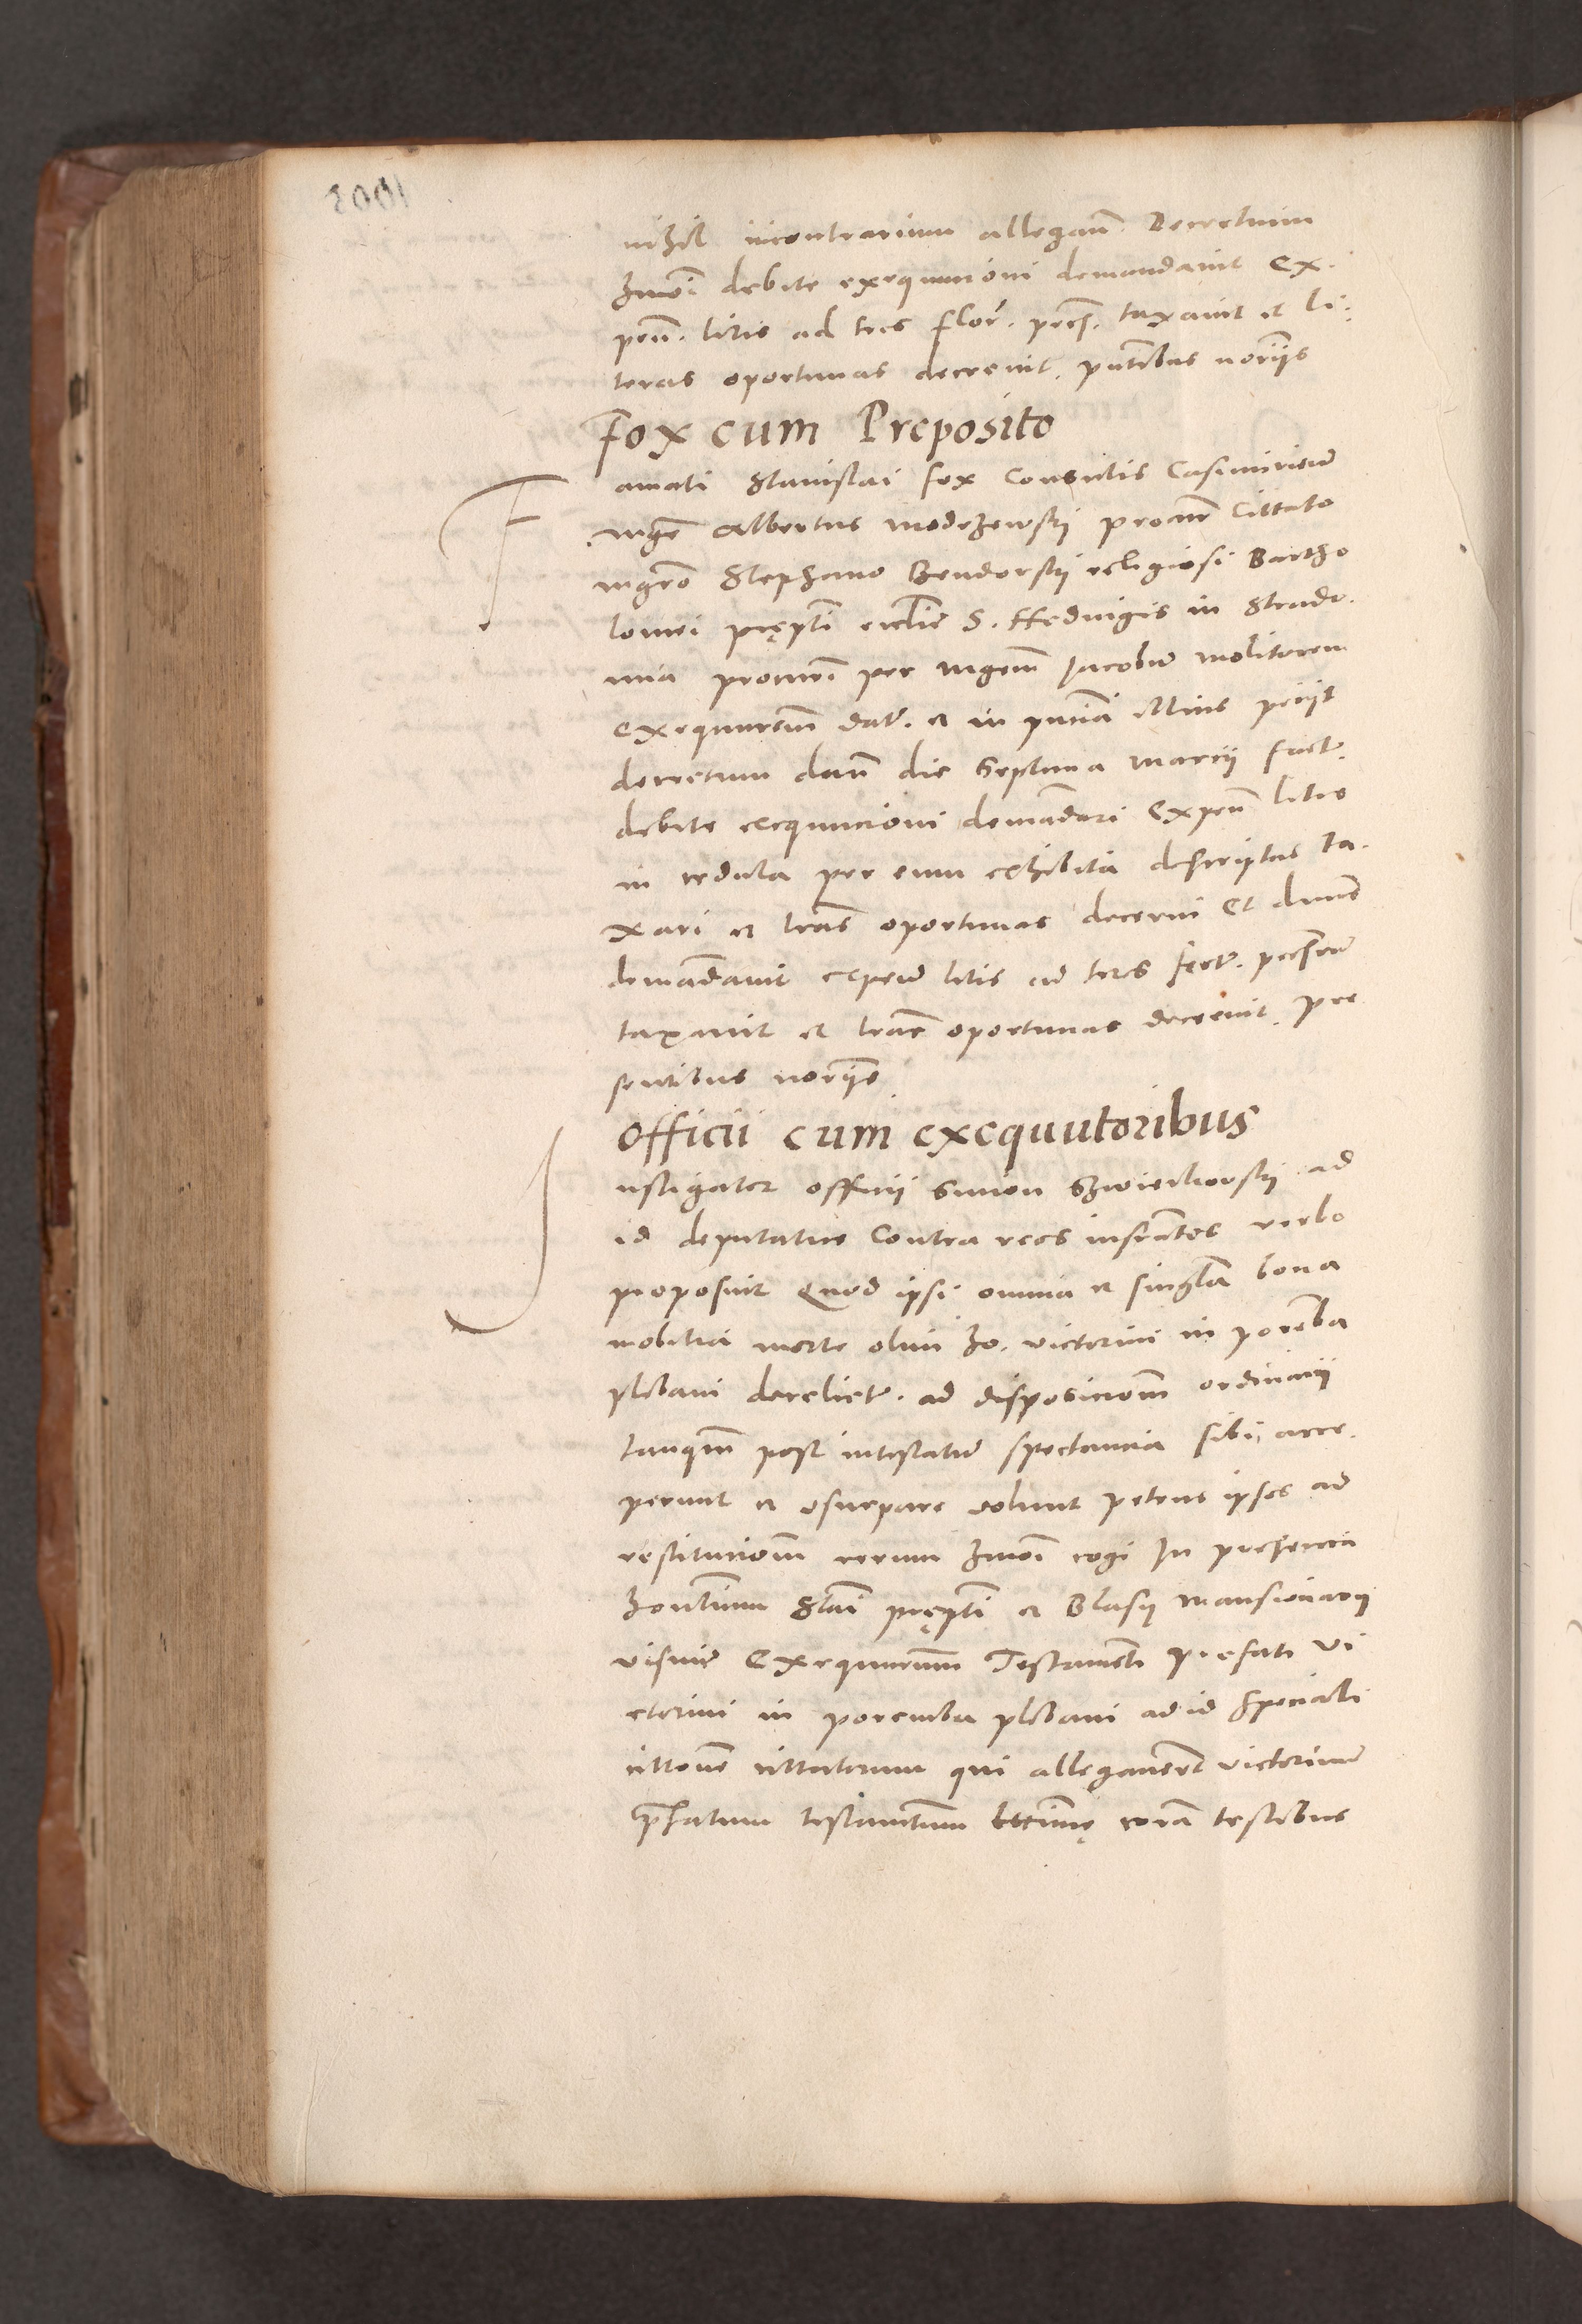 nihil incontrarium allegan̄. Decretum
hmōi debite exequucioni demandavit Ex-
peñ. litis ad tres Flor̄. pecs̄. taxavit et li-
teras oportunas decrevit. pn̄tibus noriis
Fox cum Preposito
Famati Stanislai Fox Consulis Casimirień
mgr̄ Albertus Modrzewskj procur̄ Cittato
mgrō Stephano Bendorskj religiosi Bartho
lomei prepti eccliē S. Hedvigis in Strado-
mia procurī per mgrm̄ Jacobū molitorem
Exequutorem̄ dat̄. et in pn̄cia illius petiit
decretum dn̄ die Septima Marcii fact̄.
debite exequucioni demādari Expen̄ litis
in cedula per eum exhibita descriptas ta-
xari et lrās oportunas decerni Et dnūs
demādavit expen̄ litis ad tres flor̄. pecs̄
taxavit et lrās oportunas decrevit. pre
sentibus noriis
Officii cum exequutoribus
Instigator officii Simon Szwierchovskj ad
id deputatus Contra reos infrātes verbo
proposuit Quod ipsi omnia et singl̄a bona
mobilia morte olim ho. Victorini in poremba
plebani derelict̄. ad disposicionem̄ ordinarij
tanqm̄ post intestatū spectancia sibi acce-
perunt et usurpare volunt petens ipsos ad
restitucionem̄ rerum hmōi cogi In presencia
hon̄lium Stāi prepti et Blasij mansionarij
Exequutorum̄ Testamenti prefati Vi
ctorini in poremba plebani ad id speciali
cittōne cittatorum qui allegaverūt victorinū
pfatum testamentum coram testibus